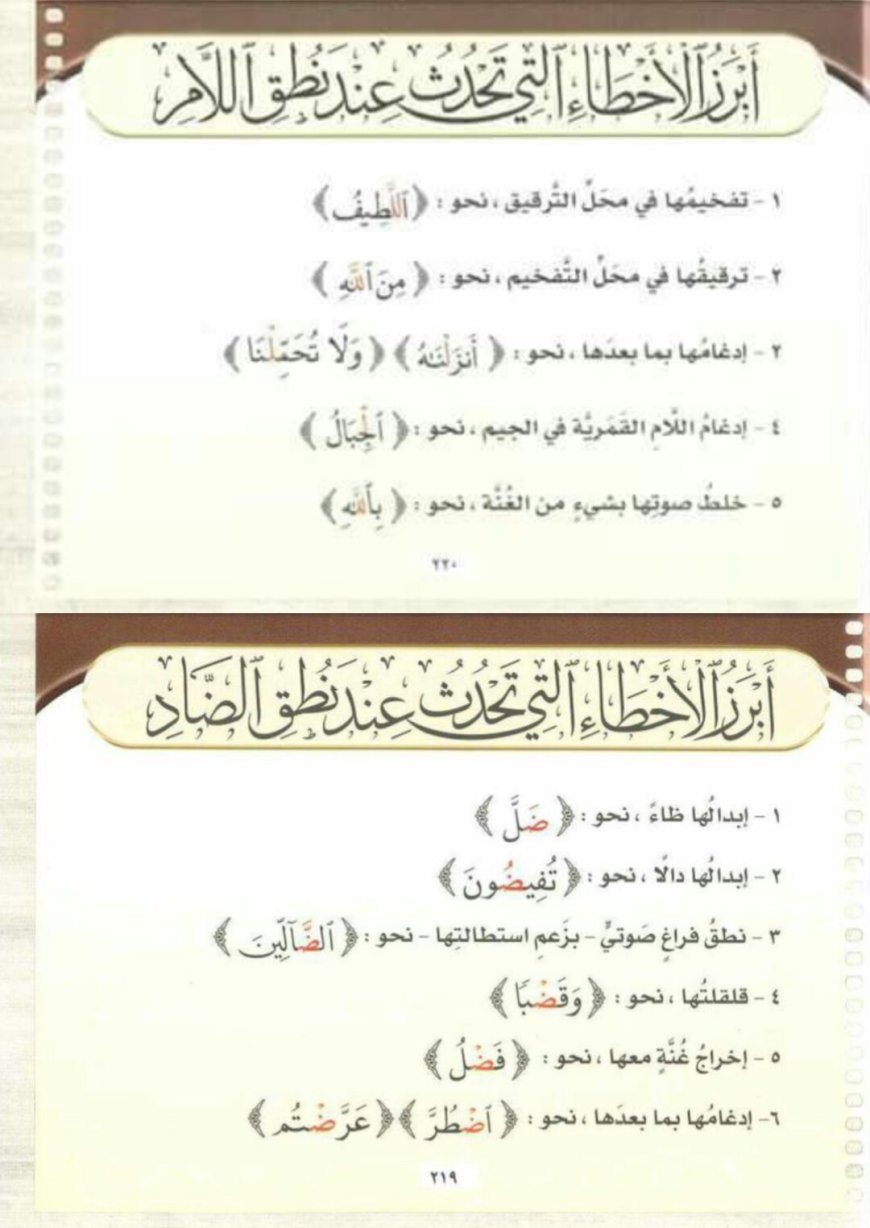 أَبْرَزُ ٱلْأَخْطَاءِ ٱلَّتِي تَحْدُثُ عِنْدَ نُطْقِ ٱللَّامِ
١ - تفخيمُها في محَلِّ التَّرقيق ، نحو : ﴿ ٱللَّطِيفُ ﴾
٢ - ترقيقُها في محَلِّ التَّفخيم ، نحو : ﴿ مِنَ ٱللَّهِ ﴾
٢ - إدغامُها بما بعدَها ، نحو : ﴿ أَنزَلْنَٰهُ ﴾ ﴿ وَلَا تُحَمِّلْنَا ﴾
٤ - إدغامُ اللَّامِ القَمَريَّة في الجيم ، نحو : ﴿ ٱلْجِبَالُ ﴾
٥ - خلطُ صوتِها بشيءٍ من الغُنَّة ، نحو : ﴿ بِٱللَّهِ ﴾
٢٢٠
أَبْرَزُ ٱلْأَخْطَاءِ ٱلَّتِي تَحْدُثُ عِنْدَ نُطْقِ ٱلضَّادِ
١ - إبدالُها ظاءً ، نحو : ﴿ ضَلَّ ﴾
٢ - إبدالُها دالًا ، نحو : ﴿ تُفِيضُونَ ﴾
٣ - نطقُ فراغٍ صَوتيٍّ - بزَعمِ استطالتِها - نحو : ﴿ ٱلضَّآلِّينَ ﴾
٤ - قلقلتُها ، نحو : ﴿ وَقَضْبًا ﴾
٥ - إخراجُ غُنَّةٍ معها ، نحو : ﴿ فَضْلُ ﴾
٦- إدغامُها بما بعدَها ، نحو : ﴿ ٱضْطُرَّ ﴾ ﴿ عَرَّضْتُم ﴾
٢١٩